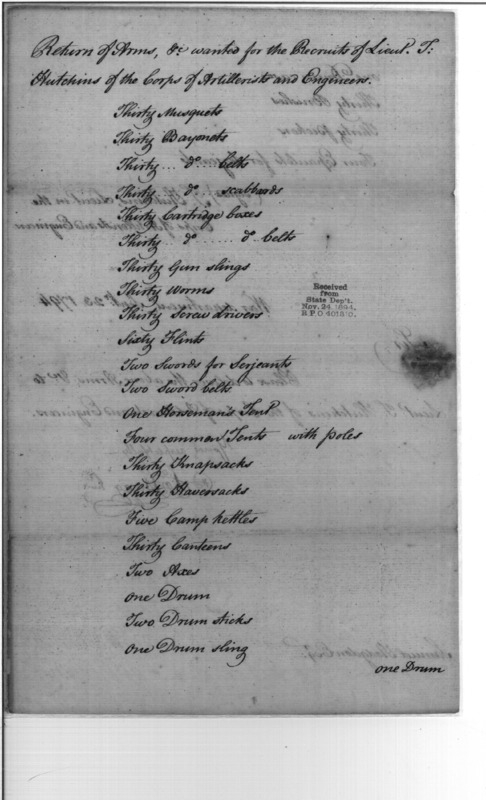 Return of Arms, &c wanted for the Recruits of Lieut. T:
Hutchins of the Corps of Artillerists and Engineers.
Thirty Musquets
Thirty Bayonets
Thirty ... do ... belts
Thirty ... do ... scabbards
Thirty Cartridge boxes
Thirty do ...... do belts
Thirty Gun slings
Thirty Worms
Thirty Screw drivers
Sixty Flints
Two Swords for Serjeants
Two Sword belts
One Horseman's Tent
Four common Tents with poles
Thirty Knapsacks
Thirty Haversacks
Five Camp kettles
Thirty Canteens
Two Axes
one Drum
Two Drum sticks
one Drum sling
one Drum
Received
from
State Dep't.
Nov. 24. 1894.